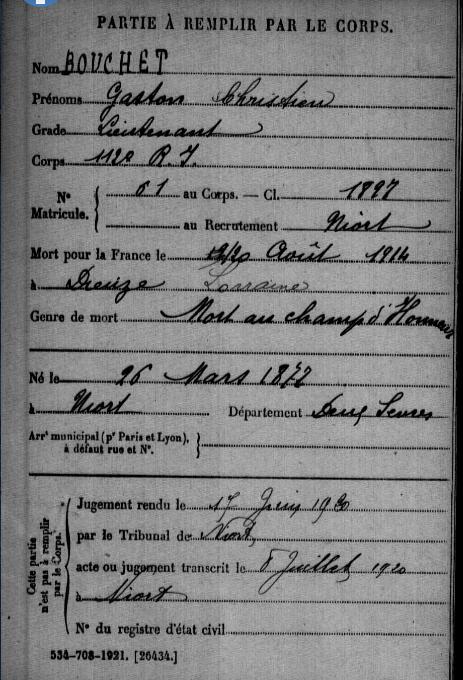 PARTIE À REMPLIR PAR LE CORPS.
Nom BOUCHET
Prénoms Gaston Christien
Grade Lieutenant
Corps 112e R. I.
N° Matricule. 61 au Corps. — Cl. 1897
au Recrutement Niort
Mort pour la France le 20 Août 1914
à Dieuze Lorraine
Genre de mort Mort au champ d'Honneur
Né le 26 Mars 1877
à Niort Département Deux Sevres
Arrt municipal (pr Paris et Lyon), à défaut rue et N°.
Cette partie n'est pas à remplir par le Corps.
Jugement rendu le 17 Juin 1920
par le Tribunal de Niort
acte ou jugement transcrit le 8 Juillet 1920
à Niort
N° du registre d'état civil
534-708-1921. [26434.]